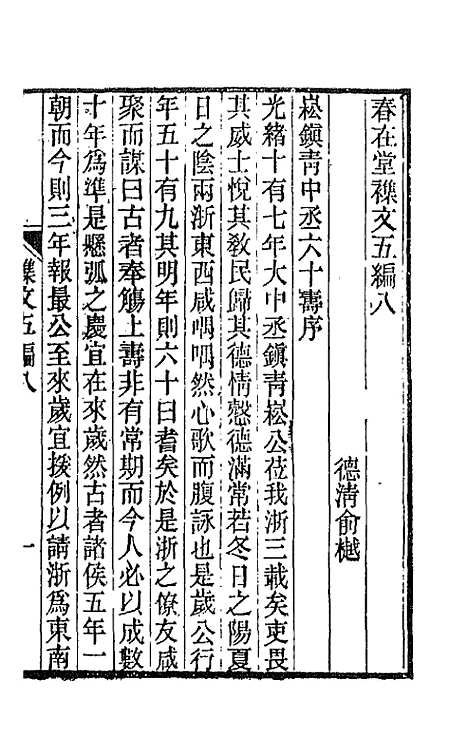 春在堂襍文五編八
德淸俞樾
崧鎭靑中丞六十壽序
光緒十有七年大中丞鎭靑崧公莅我浙三載矣吏畏
其威士悅其敎民歸其德情慤德滿常若冬日之陽夏
日之陰兩浙東西咸呴呴然心歌而腹詠也是歲公行
年五十有九其明年則六十曰耆矣於是浙之僚友咸
聚而謀曰古者奉觴上壽非有常期而今人必以成數
十年爲準是懸弧之慶宜在來歲然古者諸侯五年一
朝而今則三年報最公至來歲宜援例以請浙爲東南
襍文五編八
一